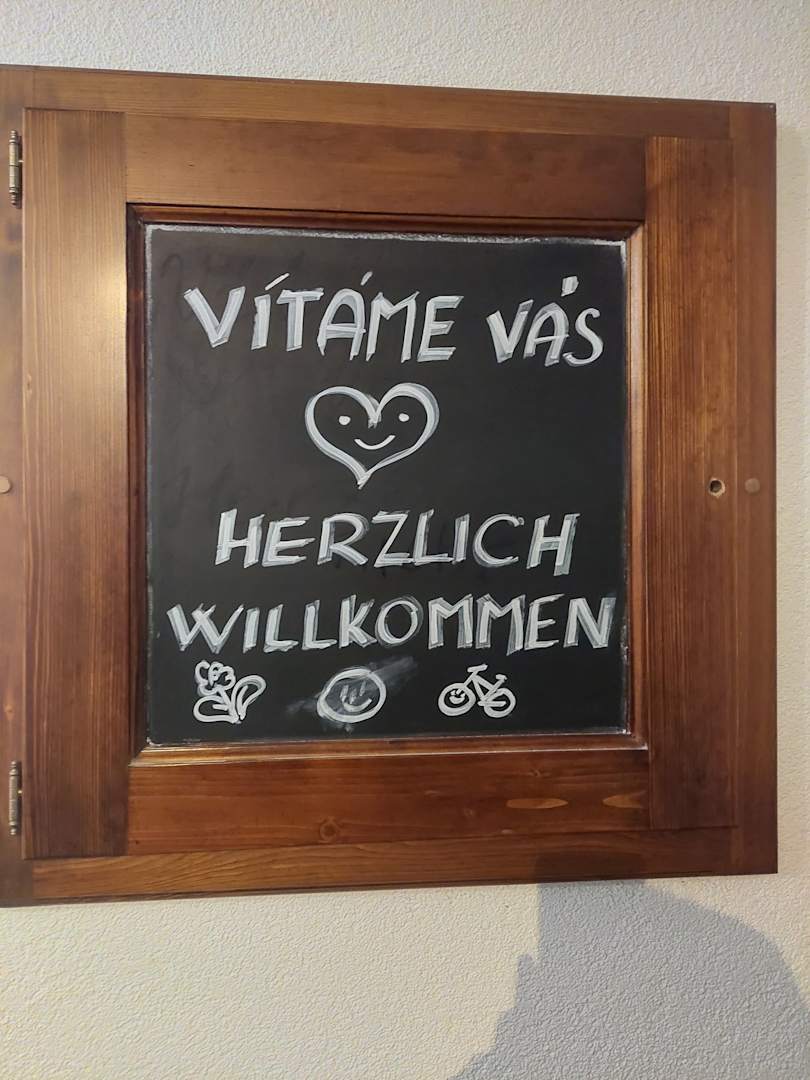 VÍTÁME VÁS
HERZLICH
WILLKOMMEN